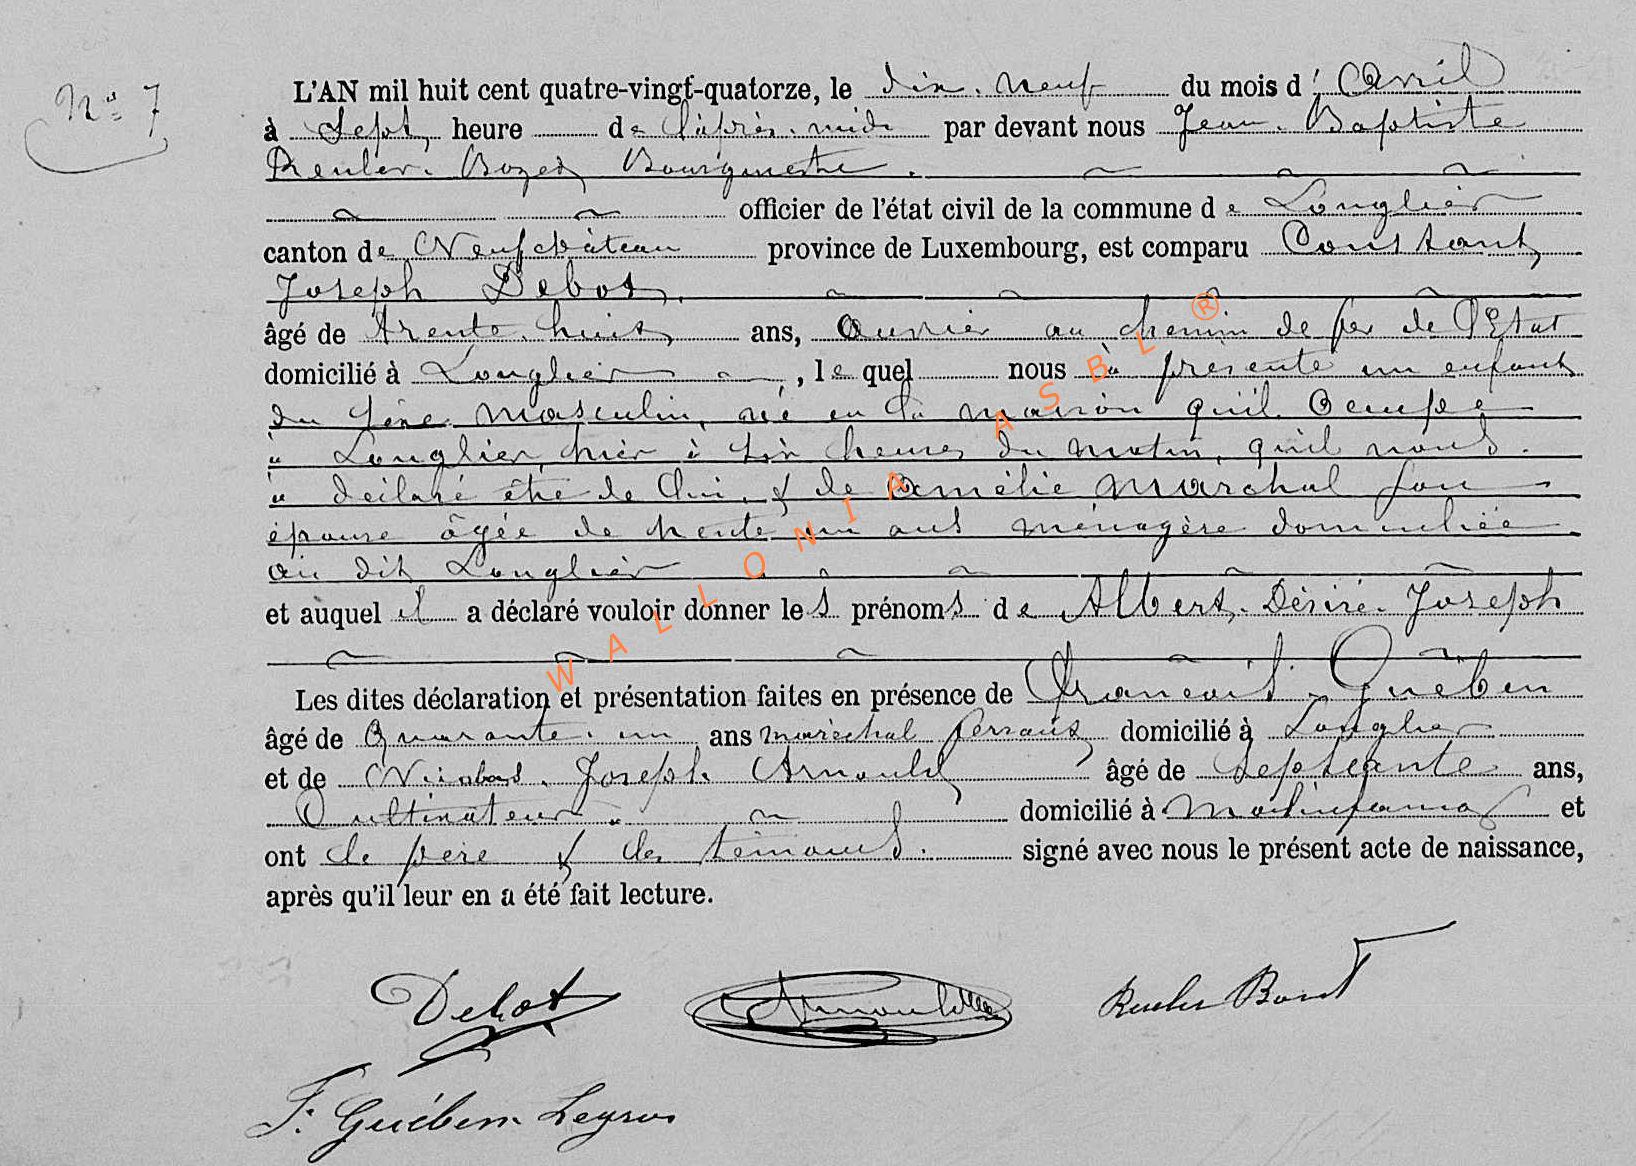 Nº 7
L'AN mil huit cent quatre-vingt-quatorze, le dix-neuf du mois d'Avril
à Sept heure de l'après-midi par devant nous Jean-Baptiste
Reuler-Bozet Bourgmestre
officier de l'état civil de la commune de Longlier
canton de Neufchâteau province de Luxembourg, est comparu Constant
Joseph Debot
âgé de trente-huit ans, ouvrier au chemin de fer de l'Etat
domicilié à Longlier, le quel nous à présenté un enfant
du sexe masculin, né en la maison qu'il occupe
à Longlier, hier à six heures du matin, qu'il nous
à déclaré être de lui, & de Amélie Marchal son
épouse âgée de trente un ans ménagère domiciliée
au dit Longlier
et auquel il a déclaré vouloir donner les prénoms de Albert-Désiré-Joseph
Les dites déclaration et présentation faites en présence de François Guében
âgé de Quarante-un ans maréchal ferrant domicilié à Longlier
et de Nicolas-Joseph Arnould âgé de septante ans,
Cultivateur domicilié à Molinfaing et
ont le père & les témoins signé avec nous le présent acte de naissance,
après qu'il leur en a été fait lecture.
Debot Arnould
F. Guében
WALLONIA ASBL ®